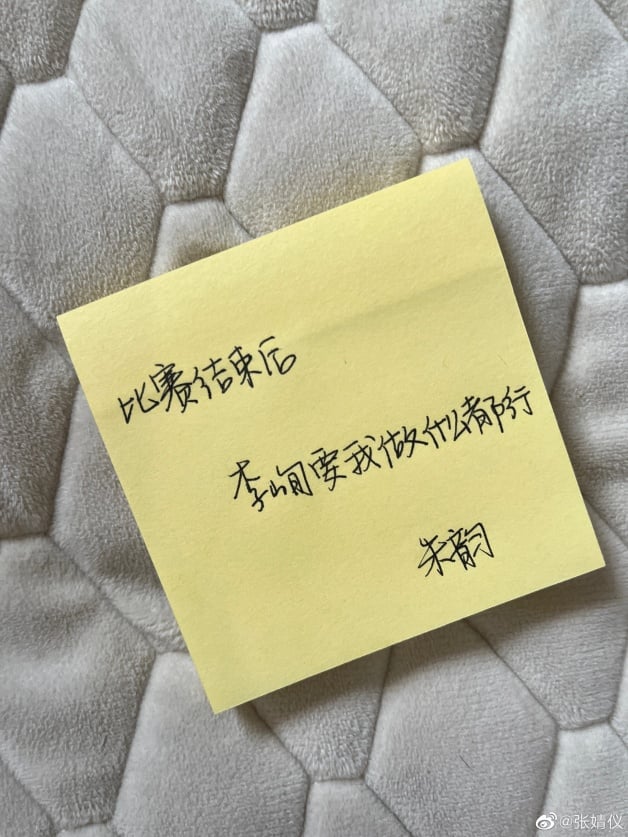 比赛结束后
李峋要我做什么都行
朱韵
@张婧仪